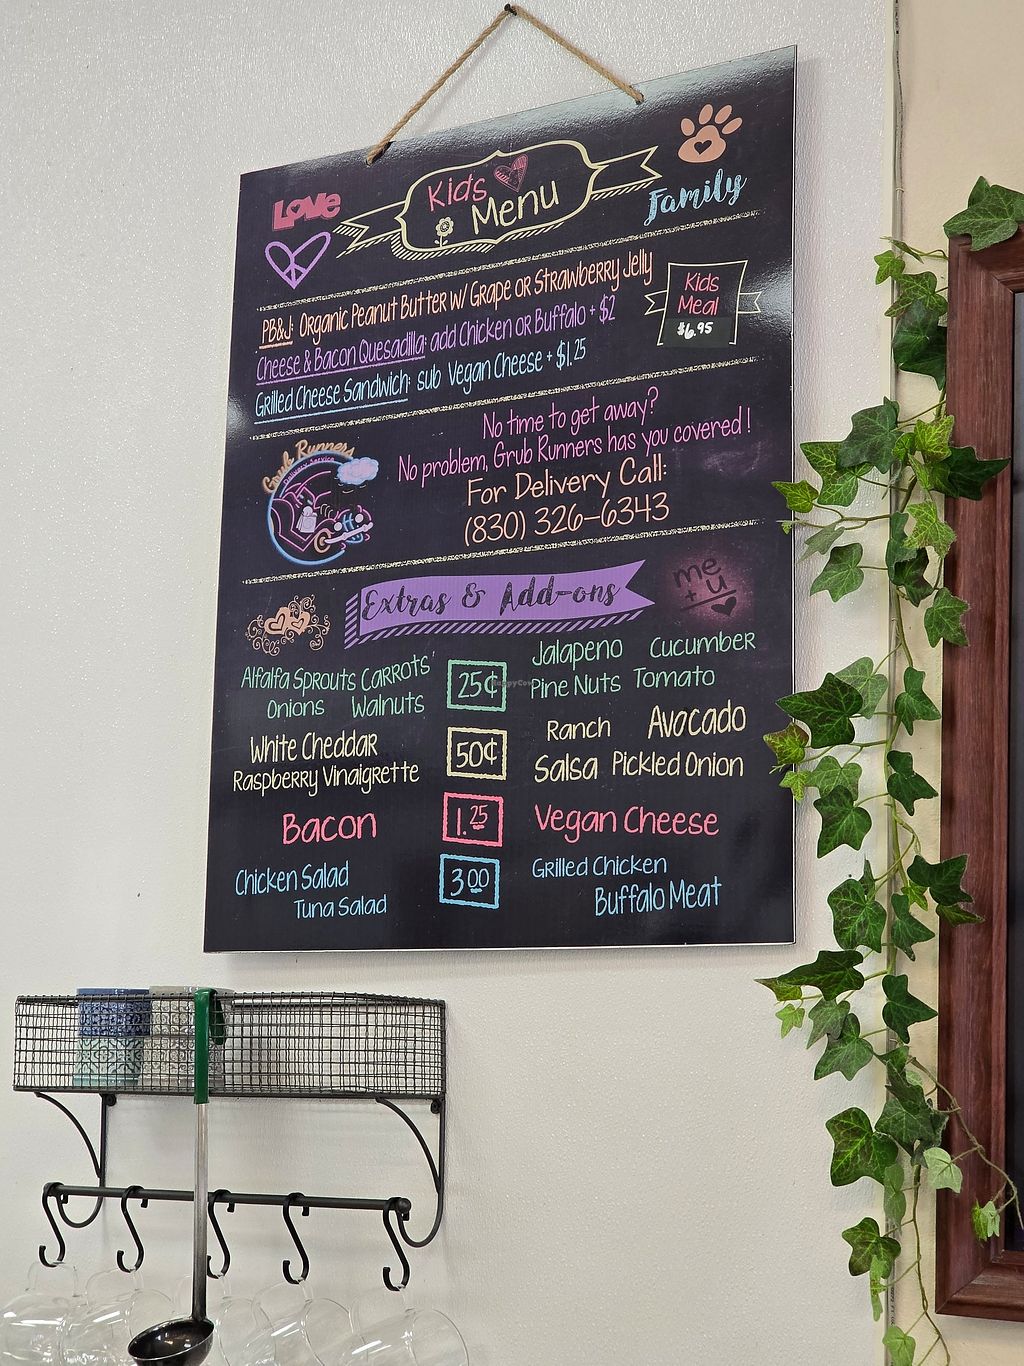 LOVE
Kids
Menu
Family
PB&J: Organic Peanut Butter w/ Grape or Strawberry Jelly
Cheese & Bacon Quesadilla: add Chicken or Buffalo + $2
Grilled Cheese Sandwich: sub Vegan Cheese + $1.25
Kids
Meal
$6.95
Grub Runners
Delivery Service
No time to get away?
No problem, Grub Runners has you covered!
For Delivery Call:
(830) 326-6343
Extras & Add-ons
me
+ u
Alfalfa Sprouts Carrots
Onions Walnuts
25¢
Jalapeno Cucumber
Pine Nuts Tomato
White Cheddar
Raspberry Vinaigrette
50¢
Ranch Avocado
Salsa Pickled Onion
Bacon
1.25
Vegan Cheese
Chicken Salad
Tuna Salad
3.00
Grilled Chicken
Buffalo Meat
HappyCow